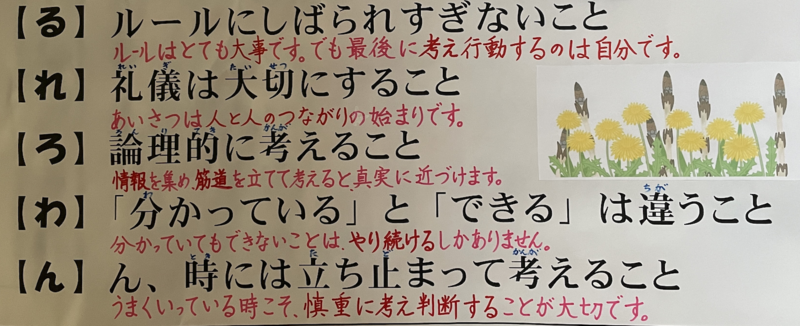 【る】ルールにしばられすぎないこと
ルールはとても大事です。でも最後に考え行動するのは自分です。
【れ】礼儀は大切にすること
あいさつは人と人のつながりの始まりです。
【ろ】論理的に考えること
情報を集め、筋道を立てて考えると、真実に近づけます。
【わ】「分かっている」と「できる」は違うこと
分かっていてもできないことは、やり続けるしかありません。
【ん】ん、時には立ち止まって考えること
うまくいっている時こそ、慎重に考え判断することが大切です。